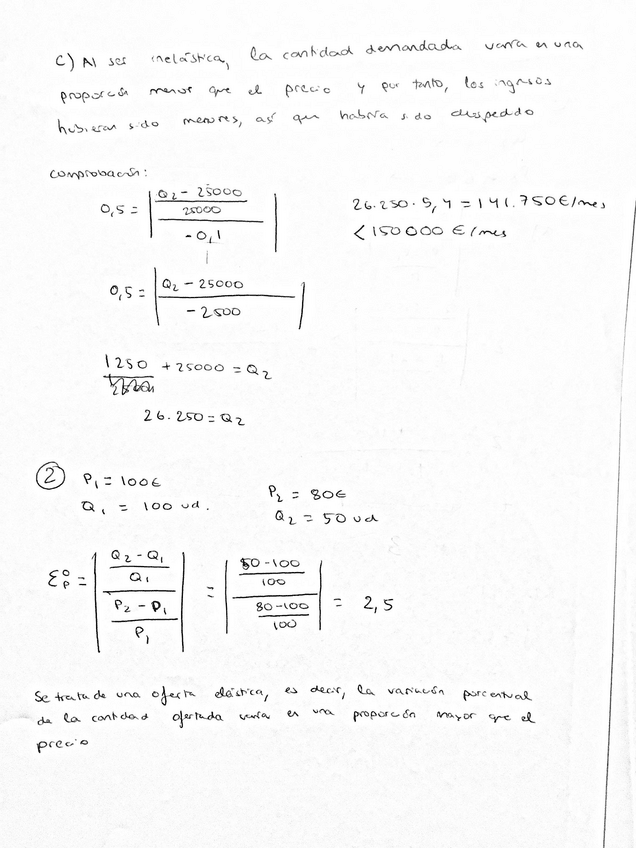 c) Al ser inelástica, la cantidad demandada varía en una
proporción menor que el precio y por tanto, los ingresos
hubieran sido menores, así que habría sido despedido
comprobación:
0,5 = | Q2 - 25000 / 25000 / -0,1 |
26.250 · 5,4 = 141.750€/mes
< 150000 €/mes
0,5 = | Q2 - 25000 / -2500 |
1250 + 25000 = Q2
26.250 = Q2
② P1 = 100€
Q1 = 100 ud.
P2 = 80€
Q2 = 50 ud
Ɛ°p = | Q2 - Q1 / Q1 / P2 - P1 / P1 | = | 50-100 / 100 / 80-100 / 100 | = 2,5
Se trata de una oferta elástica, es decir, la variación porcentual
de la cantidad ofertada varía en una proporción mayor que el
precio